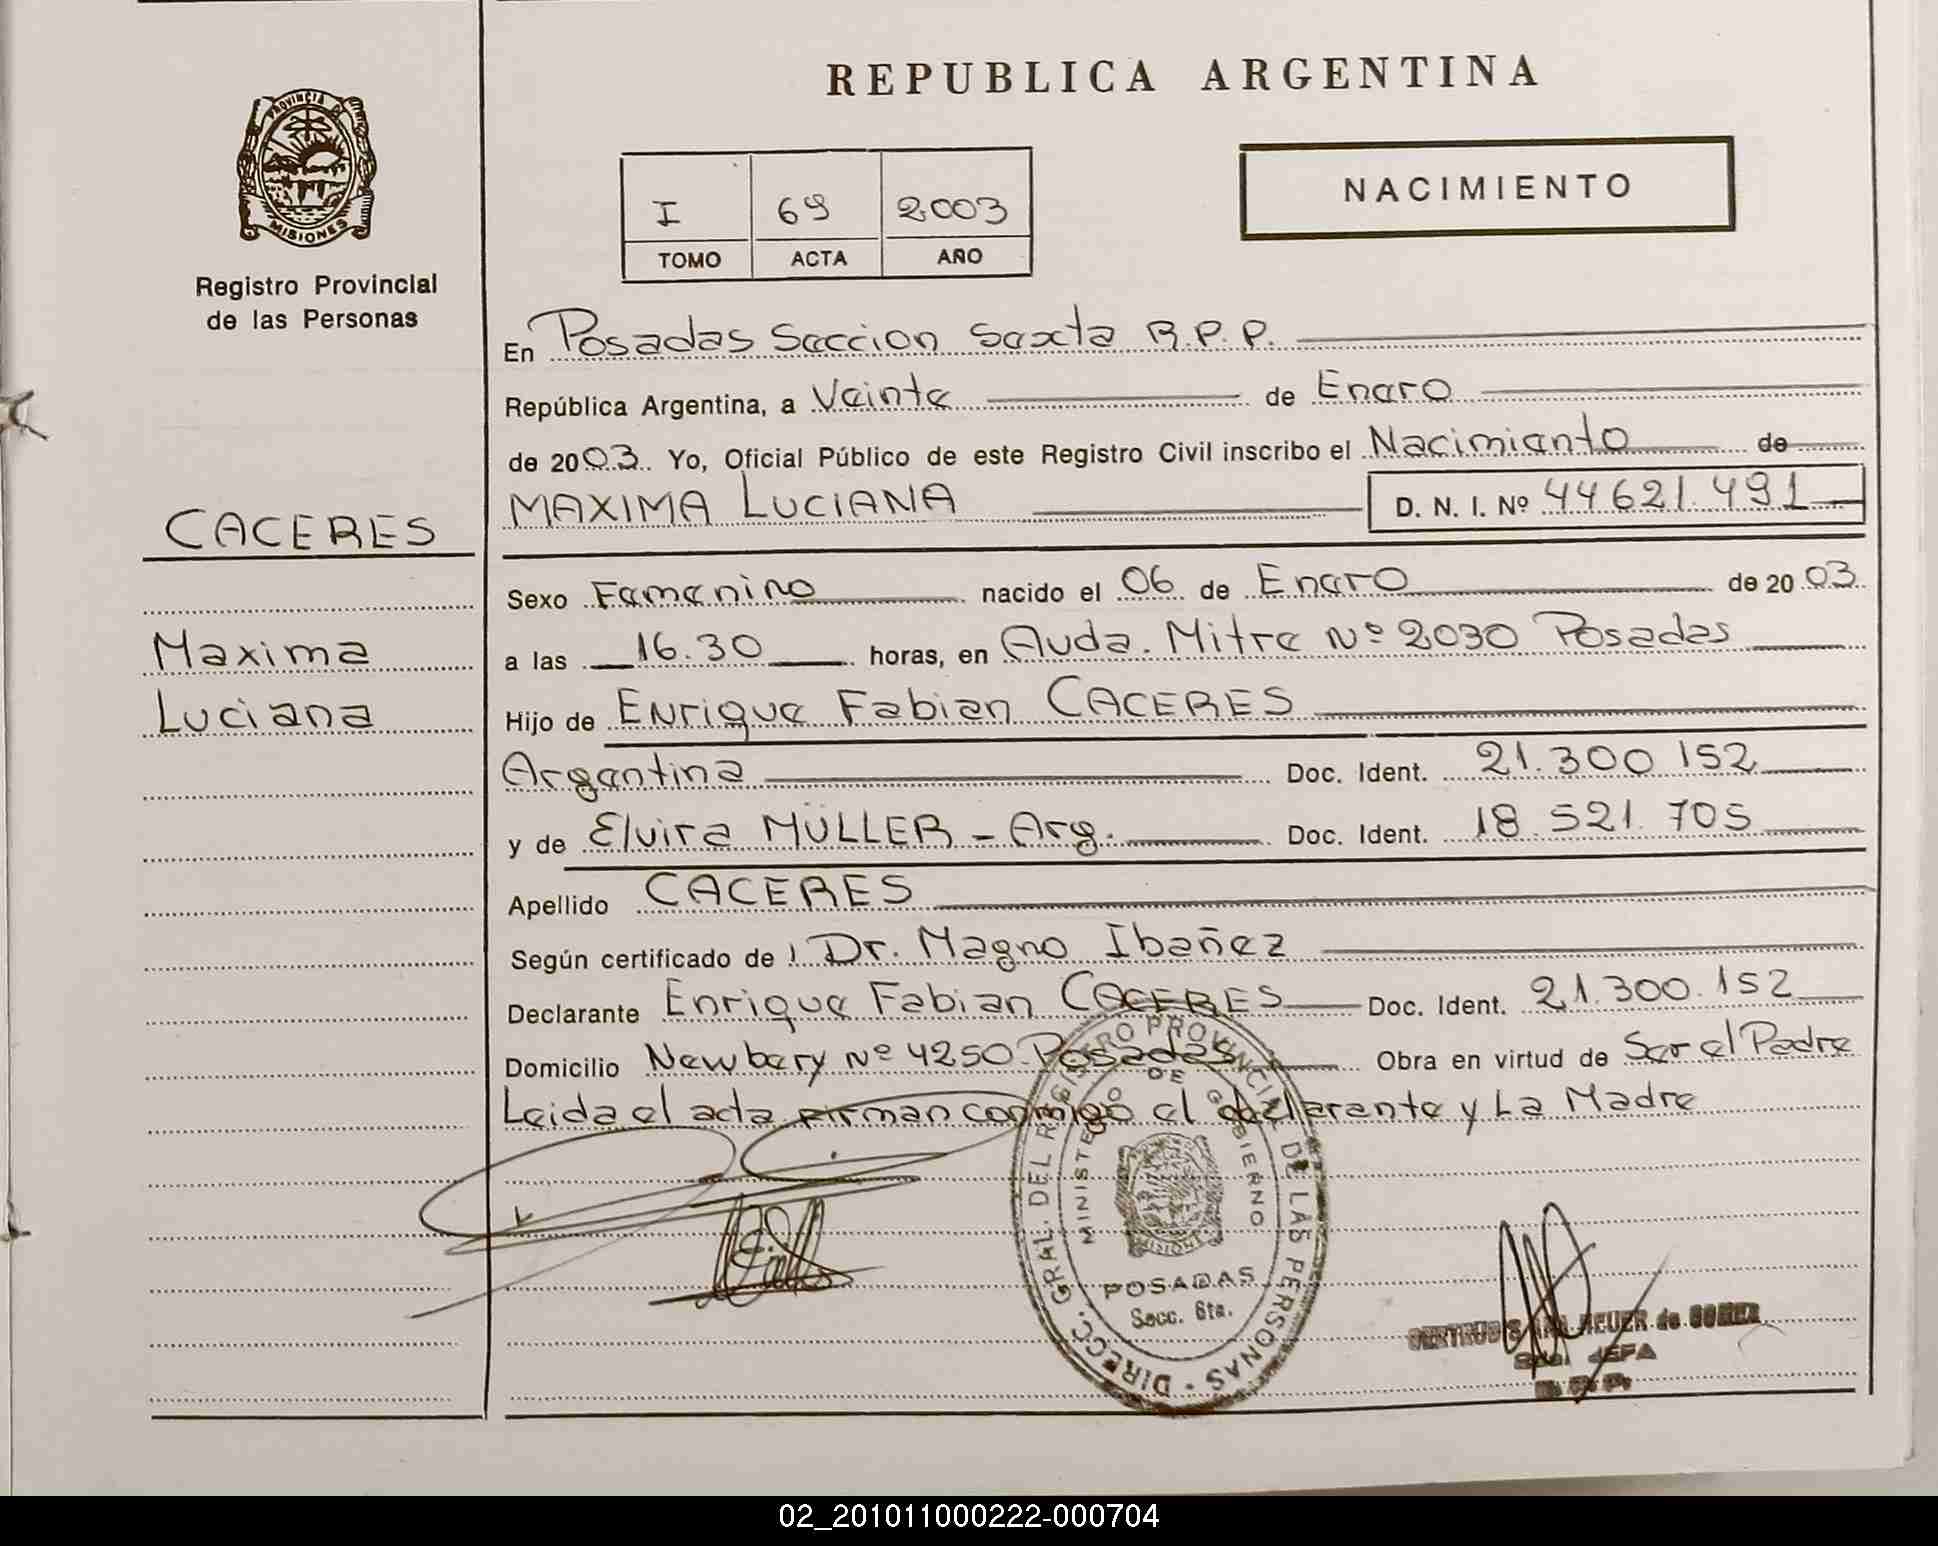 REPUBLICA ARGENTINA
PROVINCIA DE
MISIONES
Registro Provincial
de las Personas
NACIMIENTO
I 69 2003
TOMO ACTA AÑO
En Posadas Seccion Sexta R.P.P.
República Argentina, a Veinte de Enero
de 2003. Yo, Oficial Público de este Registro Civil inscribo el Nacimiento de
MAXIMA LUCIANA D. N. I. Nº 44621.491
CACERES
Sexo Femenino nacido el 06 de Enero de 2003.
Maxima
a las 16.30 horas, en Avda. Mitre Nº 2030 Posadas
Luciana
Hijo de Enrique Fabian CACERES
Argentina Doc. Ident. 21.300 152
y de Elvira MÜLLER - Arg. Doc. Ident. 18.521.705
Apellido CACERES
Según certificado de Dr. Magno Ibañez
Declarante Enrique Fabian CACERES Doc. Ident. 21.300.152
Domicilio Newbery Nº 4250 Posadas Obra en virtud de Ser el Padre
Leida el acta firman conmigo el declarante y La Madre
DIRECC. GRAL. DEL REGISTRO PROVINCIAL DE LAS PERSONAS
MINISTERIO DE GOBIERNO
MISIONES
POSADAS
Secc. 6ta.
MEUER de GOMEZ
JEFA
R.P.P.
02_201011000222-000704